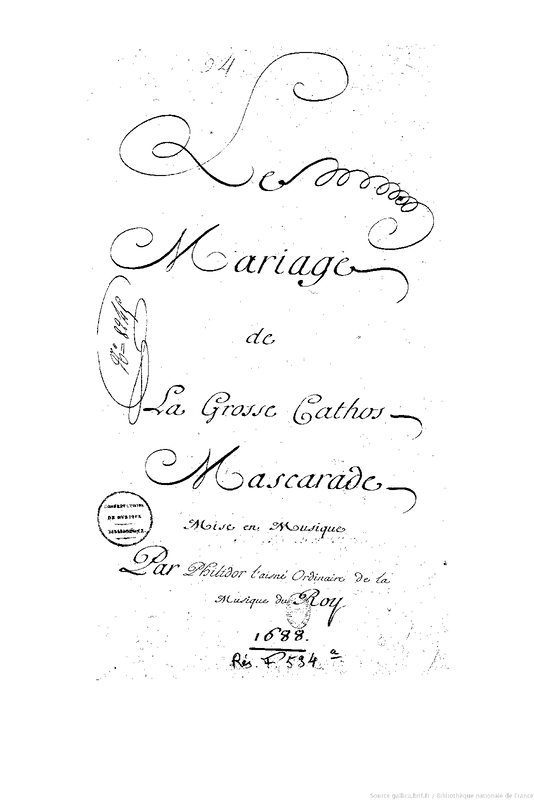 94
Le
Mariage
de
La Grosse Cathos
Mascarade
Mise en Musique
Par Philidor l'aisné Ordinaire de la
Musique du Roy
1688.
Rés. F 534 a
CONSERVATOIRE
DE MUSIQUE
BIBLIOTHÈQUE
Source gallica.bnf.fr / Bibliothèque nationale de France